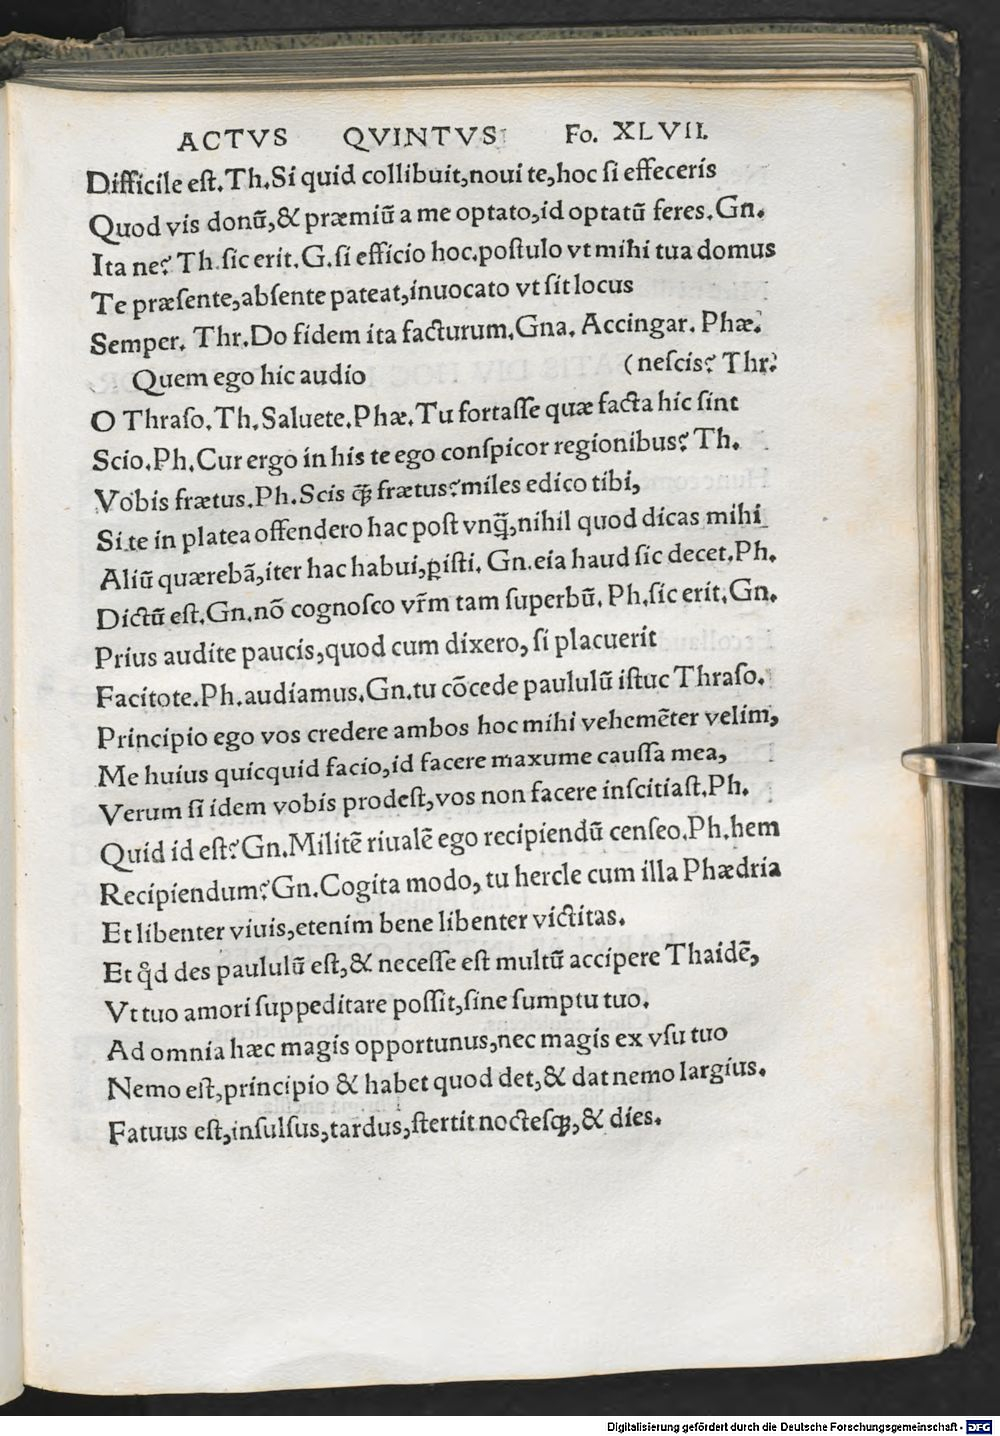 ACTVS QVINTVS Fo. XLVII.
Difficile eſt.Th.Si quid collibuit,noui te,hoc ſi effeceris
Quod vis donū,& præmiū a me optato,id optatū feres.Gn.
Ita ne? Th.ſic erit.G.ſi efficio hoc,poſtulo vt mihi tua domus
Te præſente,abſente pateat,inuocato vt ſit locus
Semper. Thr.Do fidem ita facturum.Gna. Accingar. Phæ.
Quem ego hic audio (neſcis? Thr.
O Thraſo.Th.Saluete.Phæ.Tu fortaſſe quæ facta hic ſint
Scio.Ph.Cur ergo in his te ego conſpicor regionibus? Th.
Vobis frætus.Ph.Scis q̃ frætus?miles edico tibi,
Si te in platea offendero hac poſt vnq̃,nihil quod dicas mihi
Aliū quærebā,iter hac habui,ꝑiſti. Gn.eia haud ſic decet.Ph.
Dictū eſt.Gn.nō cognoſco vr̄m tam ſuperbū. Ph.ſic erit.Gn.
Prius audite paucis,quod cum dixero, ſi placuerit
Facitote.Ph.audiamus.Gn.tu cōcede paululū iſtuc Thraſo.
Principio ego vos credere ambos hoc mihi vehemēter velim,
Me huius quicquid facio,id facere maxume cauſſa mea,
Verum ſi idem vobis prodeſt,vos non facere inſcitiaſt.Ph.
Quid id eſt?Gn.Militē riualē ego recipiendū cenſeo.Ph.hem
Recipiendum?Gn.Cogita modo, tu hercle cum illa Phædria
Et libenter viuis,etenim bene libenter victitas.
Et qͥd des paululū eſt,& neceſſe eſt multū accipere Thaidē,
Vt tuo amori ſuppeditare poſſit,ſine ſumptu tuo.
Ad omnia hæc magis opportunus,nec magis ex vſu tuo
Nemo eſt,principio & habet quod det,& dat nemo largius.
Fatuus eſt,inſulſus,tardus,ſtertit nocteſqꝫ,& dies.
Digitalisierung gefördert durch die Deutsche Forschungsgemeinschaft - DFG